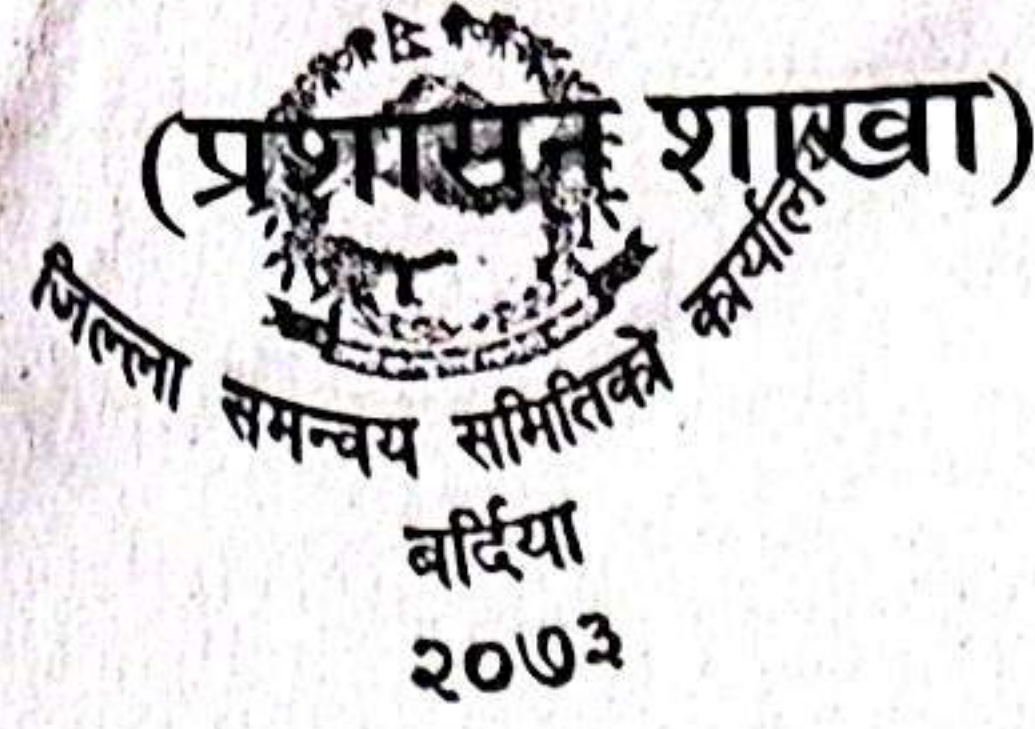 (प्रशासन शाखा)
जिल्ला समन्वय समितिको कार्यालय
बर्दिया
२०७३